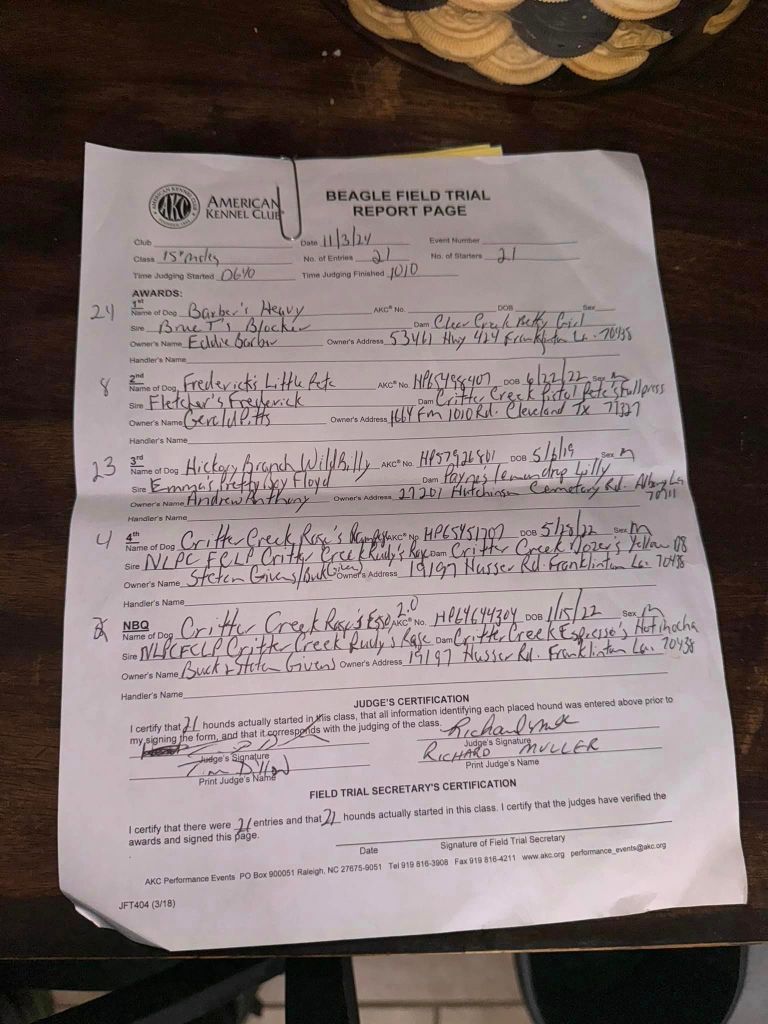 AMERICAN KENNEL CLUB
BEAGLE FIELD TRIAL
REPORT PAGE
Club Date 11/3/24 Event Number
Class 15" males No. of Entries 21 No. of Starters 21
Time Judging Started 0640 Time Judging Finished 1010
AWARDS:
24 1st
Name of Dog Barber's Heavy AKC® No. DOB Sex
Sire Blocker Dam Clear Creek Betty Girl
Owner's Name Eddie Barber Owner's Address 53461 Hwy 424 Franklinton La. 70438
Handler's Name
8 2nd
Name of Dog Frederick's Little Pete AKC® No. DOB 6/22/22 Sex m
Sire Fletcher's Frederick Dam Critter Creek Pistol Pete's Fullpress
Owner's Name Gerald Pitts Owner's Address 1664 Fm 1010 Rd. Cleveland Tx 77327
Handler's Name
23 3rd
Name of Dog Hickory Branch Wild Billy AKC® No. HP57926801 DOB 5/6/19 Sex m
Sire Emma's Pretty Boy Floyd Dam Payne's Lemondrop Lilly
Owner's Name Andrew Anthony Owner's Address 27201 Hutchinson Cemetery Rd. Albany La 70711
Handler's Name
4 4th
Name of Dog Critter Creek Rose's AKC® No. HP65451707 DOB 5/28/22 Sex m
Sire NLPC FCLP Critter Creek Rudy's Dam Critter Creek Yellow
Owner's Name Steten Givens/Buck Givens Owner's Address 19197 Husser Rd. Franklinton La. 70438
Handler's Name
2 NBQ
Name of Dog Critter Creek Rose's 2.0 AKC® No. HP64644304 DOB 1/15/22 Sex m
Sire NLPCFCLP Critter Creek Rudy's Rose Dam Critter Creek Espresso's Hot mocha
Owner's Name Buck & Steten Givens Owner's Address 19197 Husser Rd. Franklinton La. 70438
Handler's Name
JUDGE'S CERTIFICATION
I certify that 21 hounds actually started in this class, that all information identifying each placed hound was entered above prior to
my signing the form, and that it corresponds with the judging of the class.
Judge's Signature Judge's Signature
Tim Dillon RICHARD MULLER
Print Judge's Name Print Judge's Name
FIELD TRIAL SECRETARY'S CERTIFICATION
I certify that there were 21 entries and that 21 hounds actually started in this class. I certify that the judges have verified the
awards and signed this page.
Date Signature of Field Trial Secretary
AKC Performance Events PO Box 900051 Raleigh, NC 27675-9051 Tel 919 816-3908 Fax 919 816-4211 www.akc.org performance_events@akc.org
JFT404 (3/18)